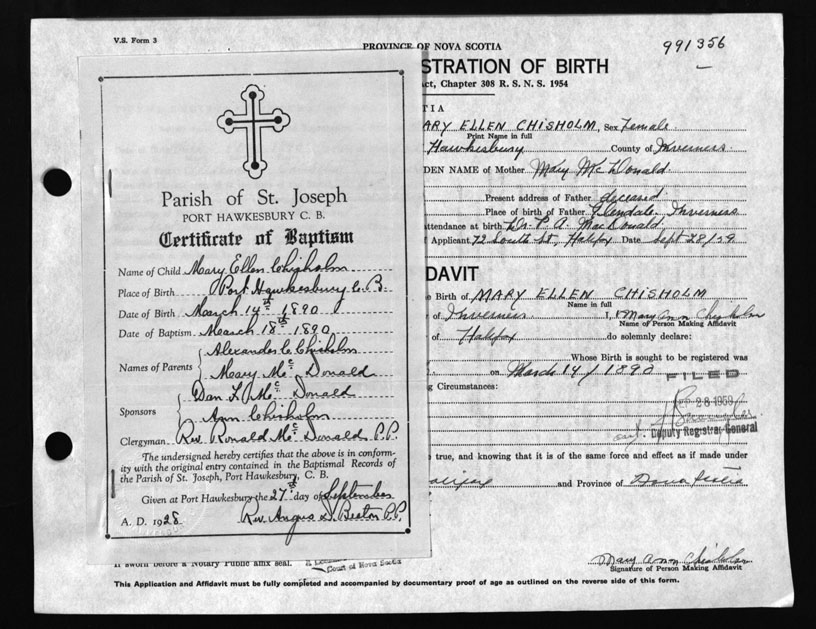 V.S. Form 3
PROVINCE OF NOVA SCOTIA
991356
STRATION OF BIRTH
ct, Chapter 308 R. S. N. S. 1954
TIA
ARY ELLEN CHISHOLM, Sex Female
Print Name in full
Hawkesbury County of Inverness
DEN NAME of Mother Mary McDonald
Present address of Father deceased
Place of birth of Father Glendale, Inverness
attendance at birth Dr. P. A. MacDonald,
Applicant 72 South St, Halifax Date Sept 28/59
DAVIT
e Birth of MARY ELLEN CHISHOLM
Name in full
of Inverness I, Mary Ann Chisholm
Name of Person Making Affidavit
of Halifax do solemnly declare:
Whose Birth is sought to be registered was
on March 14/1890
FILED
g Circumstances:
28 1959
Deputy Registrar General
e true, and knowing that it is of the same force and effect as if made under
alifax and Province of Nova Scotia
Mary Ann Chisholm
Signature of Person Making Affidavit
If sworn before a Notary Public affix seal.
Court of Nova Scotia
This Application and Affidavit must be fully completed and accompanied by documentary proof of age as outlined on the reverse side of this form.
Parish of St. Joseph
PORT HAWKESBURY C. B.
Certificate of Baptism
Name of Child Mary Ellen Chisholm
Place of Birth Port Hawkesbury C. B.
Date of Birth March 14th 1890
Date of Baptism March 18th 1890
Names of Parents Alexander C Chisholm
Mary Mc Donald
Sponsors Dan F. Mc Donald
Ann Chisholm
Clergyman Rev. Ronald Mc Donald P.P.
The undersigned hereby certifies that the above is in conform-
ity with the original entry contained in the Baptismal Records of
the Parish of St. Joseph, Port Hawkesbury, C. B.
Given at Port Hawkesbury the 27th day of September
A. D. 1928 Rev. Angus D. Beaton P.P.